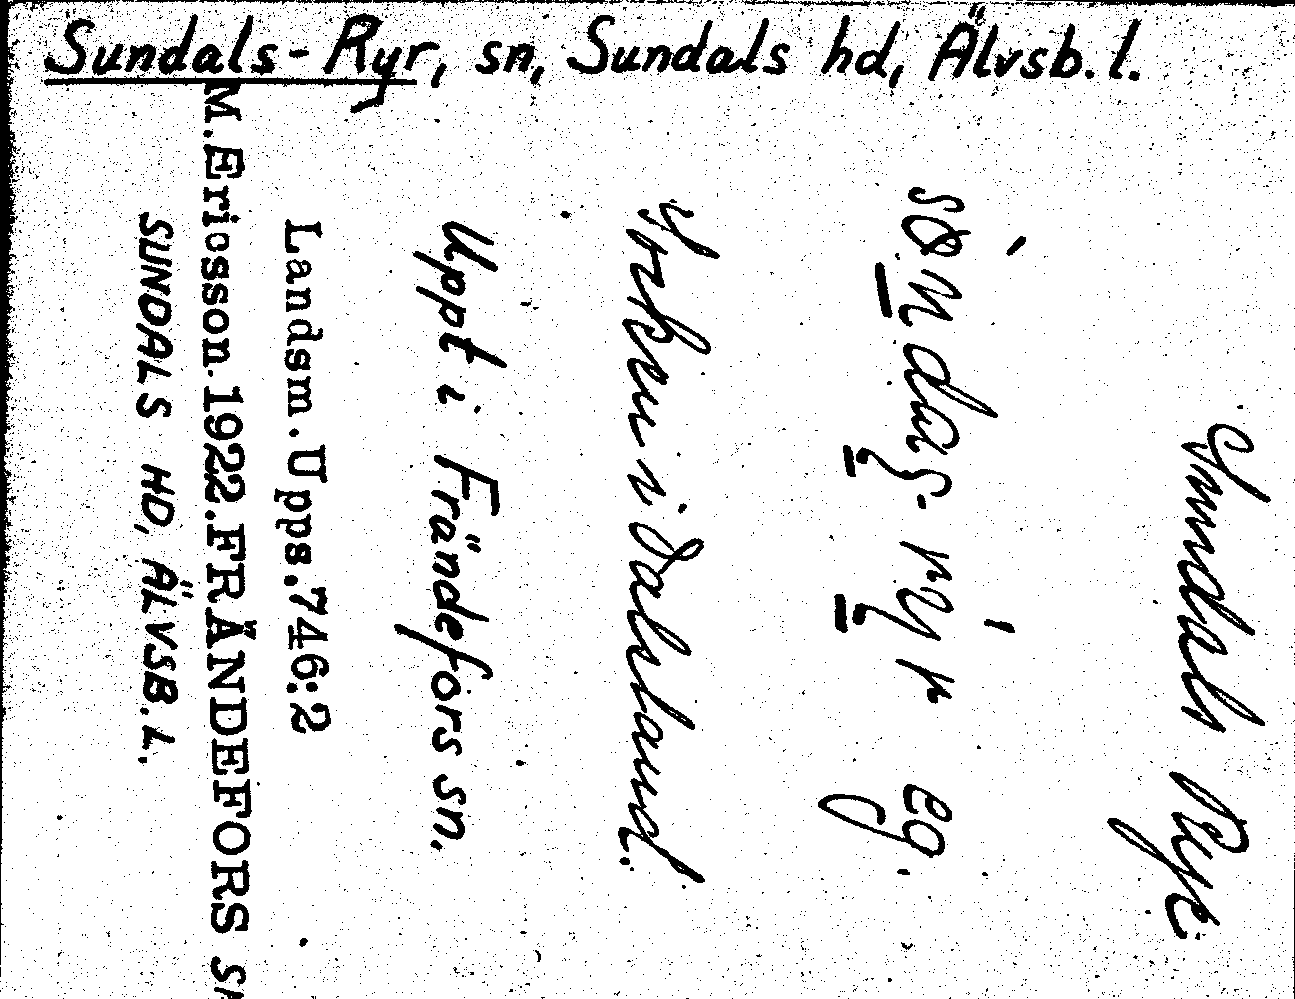 Sundals-Ryr, sn, Sundals hd, Älvsb. l.
Sundals Ryr
eg.
Socken i Dalsland.
Uppt i Frändefors sn.
Landsm. Upps. 746:2
M. Ericsson 1922. FRÄNDEFORS
SUNDALS HD, ÄLVSB. L.